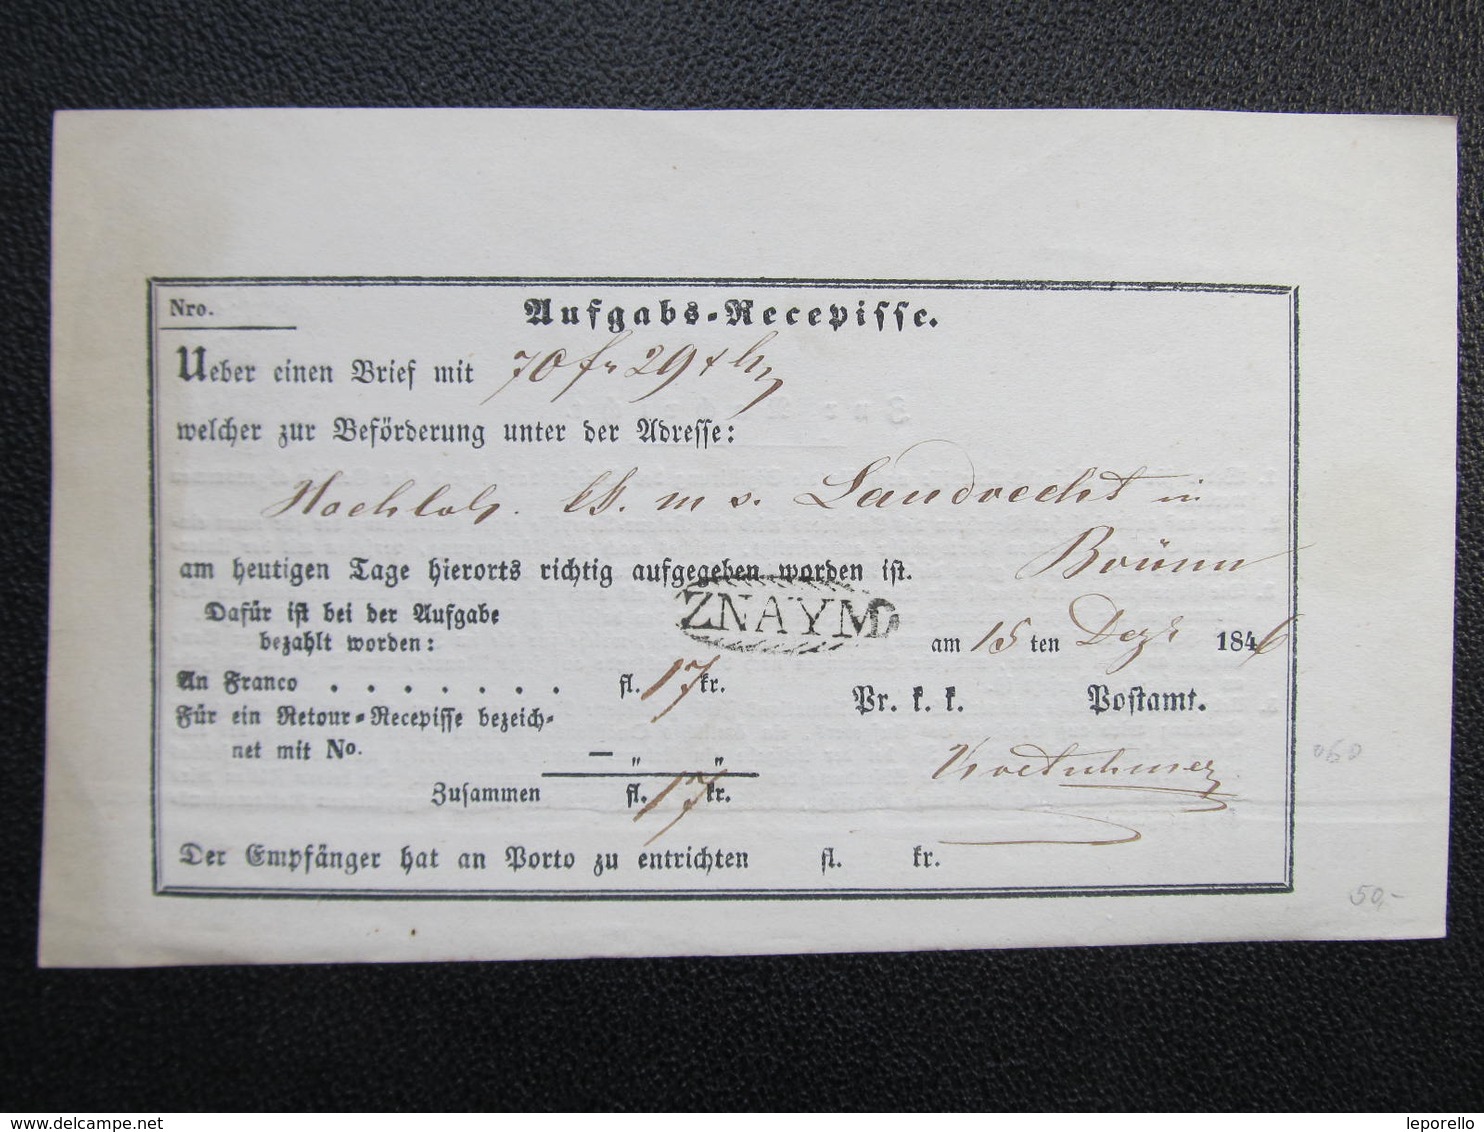 Nro.
Aufgabs-Recepisse.
Ueber einen Brief mit 70 fr 29 x
welcher zur Beförderung unter der Adresse:
m. s. Landrecht in
Brünn
am heutigen Tage hierorts richtig aufgegeben worden ist.
ZNAYM
Dafür ist bei der Aufgabe
bezahlt worden:
am 15 ten Dezb 1846
An Franco . . . . . . . fl. 17 kr.
Für ein Retour-Recepisse bezeich-
net mit No. — „ „
Pr. k. k. Postamt.
Zusammen fl. 17 kr.
Der Empfänger hat an Porto zu entrichten fl. kr.
50,-
delcampe.net
leporello